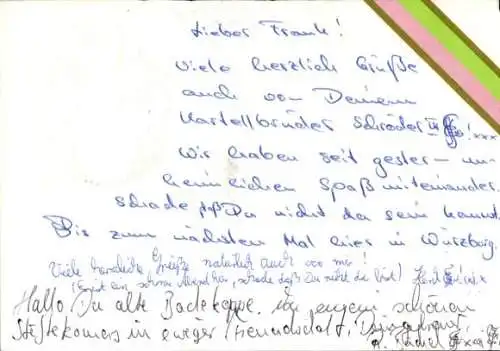 Lieber Frank!
Viele herzlich Grüße
auch von Deinem
Kartellbruder Schröder III !xxx
Wir haben seit gester – un-
heimlichen Spaß miteinander.
Schade daß Du nicht da sein kannst.
Bis zum nächsten Mal hier in Würzburg.
Viele herzliche Grüße natürlich auch von mir!
ein schöner Abend hier, schade daß Du nicht da bist)
Hallo, Du alte Badekappe. schönen
in ewiger Freundschaft,